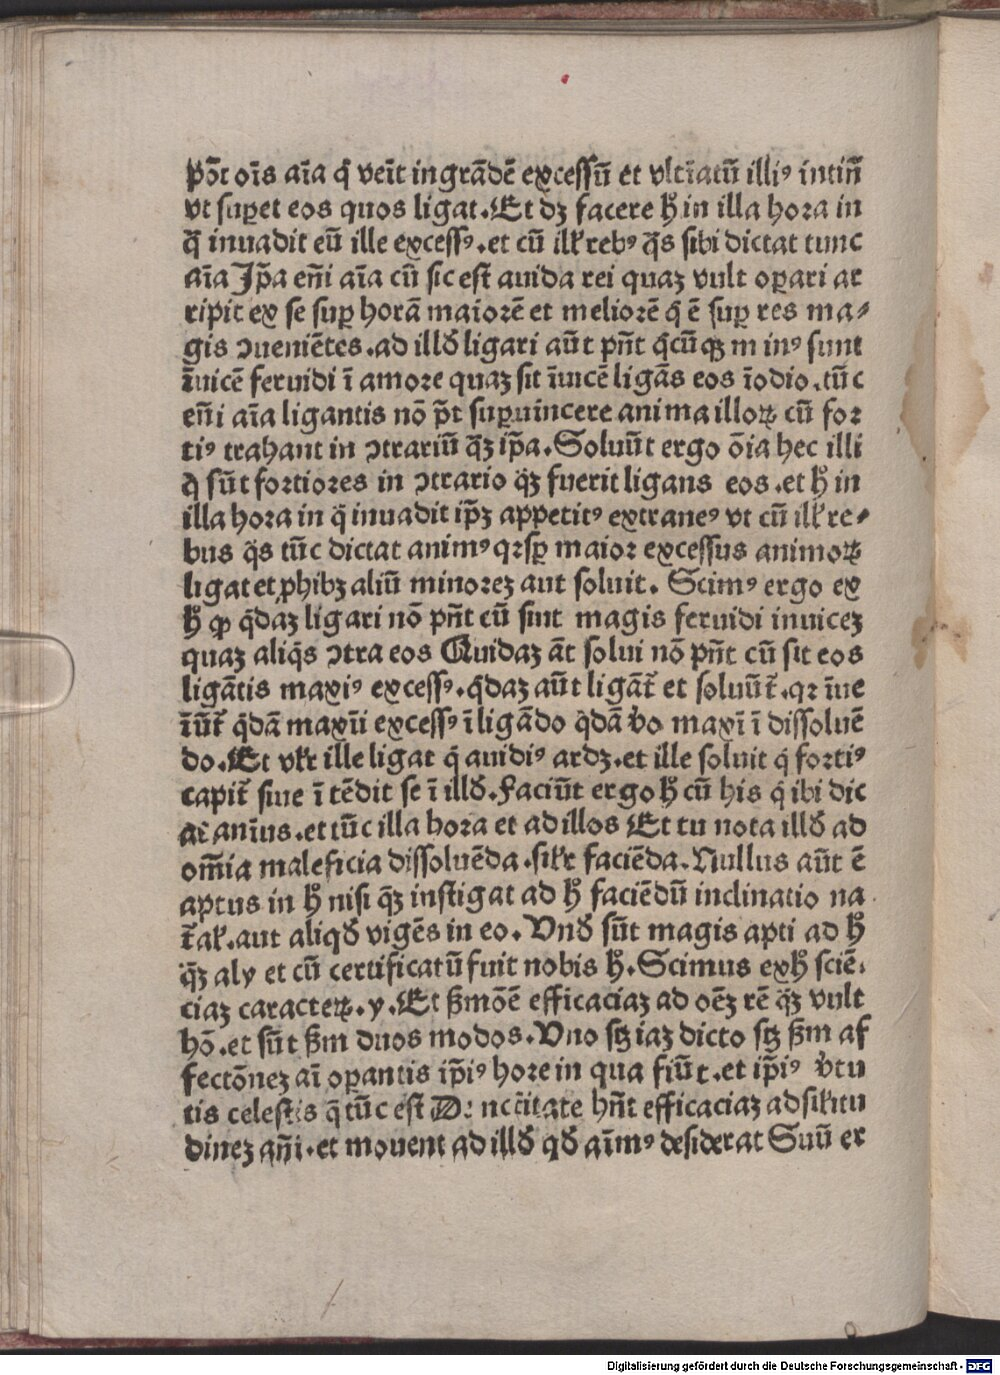 põt oĩs aĩa q̃ veĩt in grãdẽ excessũ et vltĩatũ illiꝰ intiñ
vt suꝑet eos quos ligat. Et dꝫ facere h̊ in illa hora in
q̃ inuadit eũ ille excessꝰ. et cũ ill̃ rebꝰ q̃s sibi dictat tunc
aĩa Ip̃a eñi aĩa cũ sic est auida rei quaꝫ vult oꝑari ar
ripit ex se suꝑ horã maiorẽ et meliorẽ q̃ ẽ suꝑ res ma⸗
gis ꝯueniẽtes. ad illđ ligari aũt pñt q̃cũqꝫ m inꝰ sunt
ĩuicẽ feruidi ĩ amore quaꝫ sit ĩuicẽ ligãs eos ĩodio. tũc
eñi aĩa ligantis nõ p̃t suꝑuincere anima illoꝝ cũ for
tiꝰ trahant in ꝯtrariũ q̃ꝫ ip̃a. Soluũt ergo õia hec illi
q̃ sũt fortiores in ꝯtrario q̃ꝫ fuerit ligans eos. et h̊ in
illa hora in q̃ inuadit ip̃ꝫ appetitꝰ extraneꝰ vt cũ ill̃ re⸗
bus q̃s tũc dictat animꝰ qꝛ sꝑ maior excessus animoꝝ
ligat et ꝓhibꝫ aliũ minoreꝫ aut soluit. Scimꝰ ergo ex
h̊ ꝙ q̃daꝫ ligari nõ pñt cũ sint magis feruidi inuiceꝫ
quaꝫ aliq̃s ꝯtra eos Quidaꝫ ãt solui nõ pñt cũ sit eos
ligãtis maxiꝰ excessꝰ. q̃daꝫ aũt ligãt̃ et soluũt̃. qꝛ ĩue
ĩũt̃ q̃dã maxĩi excessꝰ ĩ ligãdo q̃dã ṽo maxĩ ĩ dissoluẽ
do. Et vl̃r ille ligat q̃ auidiꝰ ardꝫ. et ille soluit q̃ fortiꝰ
capit̃ siue ĩ tẽdit se ĩ illđ. Faciũt ergo h̊ cũ his q̃ ibi dic
at anĩus. et tũc illa hora et ad illos Et tu nota illđ ad
om̃ia maleficia dissoluẽda. sil̃r faciẽda. Nullus aũt ẽ
aptus in h̊ nisi q̃ꝫ instigat ad h̊ faciẽdũ inclinatio na
t̃al̃. aut aliqđ vigẽs in eo. Vnđ sũt magis apti ad h̊
q̃ꝫ aly et cũ certificatũ fuit nobis h̊. Scimus ex h̊ sciẽ.
ciaꝫ caracteꝝ. y. Et ẞm õẽ efficaciaꝫ ad oẽꝫ rẽ q̃ꝫ vult
hõ. et sũt ẞm duos modos. Vno sꝫ iaꝫ dicto sꝫ ẞm af
fectõneꝫ aĩ oꝑantis ip̃iꝰ hore in qua fiũt. et ip̃iꝰ ṽtu
tis celestis q̃ tũc est De nc̃citate hñt efficaciaꝫ ad sil̃itu
dineꝫ añi. et mouent ad illđ qđ aĩmꝰ desiderat Suũ er
Digitalisierung gefördert durch die Deutsche Forschungsgemeinschaft - DFG